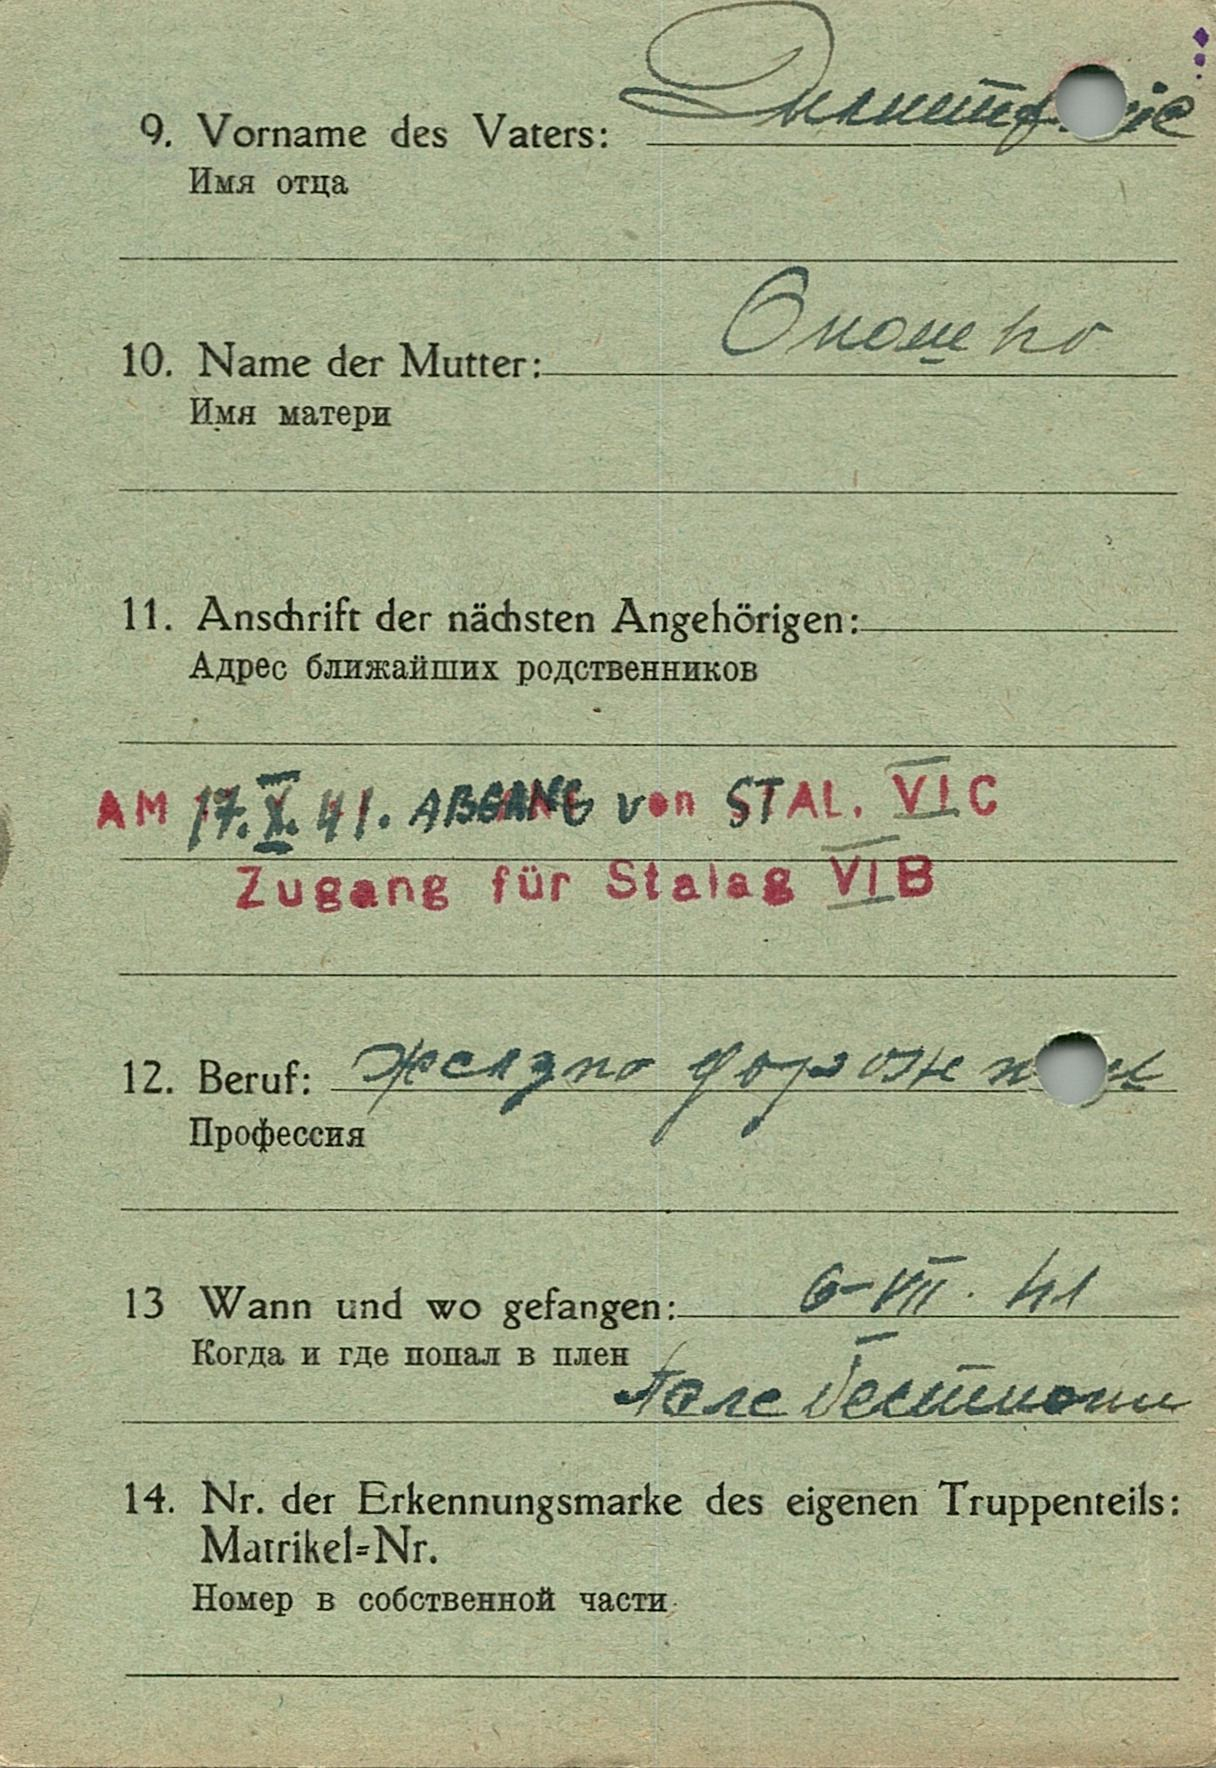 9. Vorname des Vaters:
Имя отца
10. Name der Mutter: Оношко
Имя матери
11. Anschrift der nächsten Angehörigen:
Адрес ближайших родственников
AM 17. X. 41. ABGANG von STAL. VI C
Zugang für Stalag VI B
12. Beruf:
Профессия
13 Wann und wo gefangen: 6-VII. 41
Когда и где попал в плен
14. Nr. der Erkennungsmarke des eigenen Truppenteils:
Matrikel=Nr.
Номер в собственной части